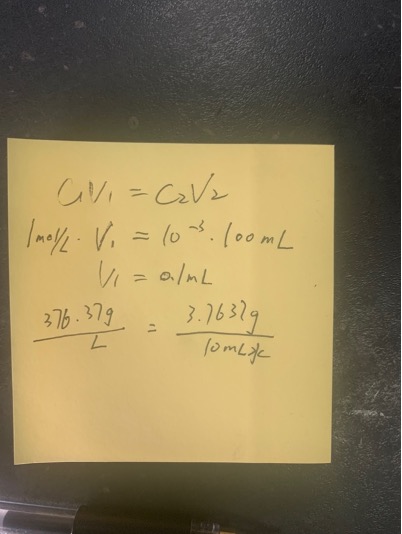 C1V1 = C2V2
1mol/L · V1 = 10⁻³ · 100mL
V1 = 0.1mL
376.37g/L = 3.7637g/10mL水